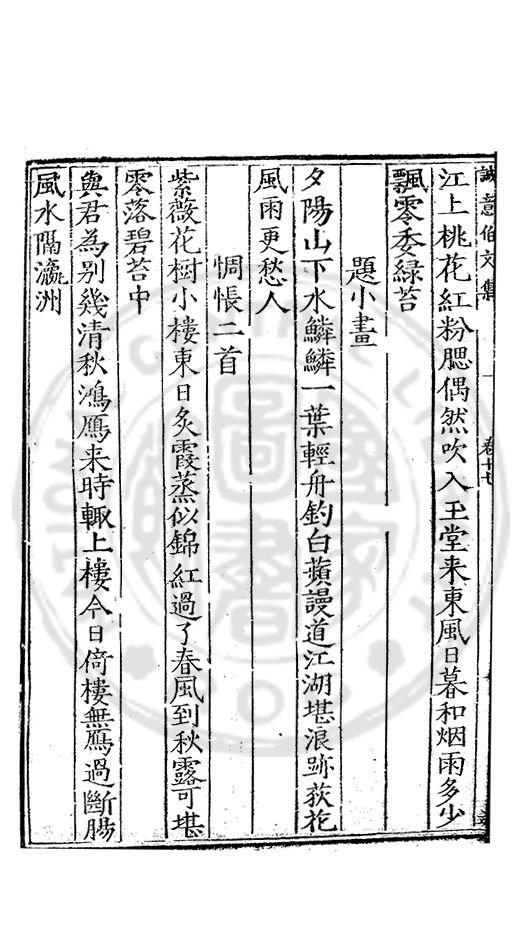 誠意伯文集 卷十七
江上桃花紅粉腮偶然吹入玉堂来東風日暮和烟雨多少
飄零委緑苔
題小畫
夕陽山下水鱗鱗一葉輕舟釣白蘋謾道江湖堪浪跡荻花
風雨更愁人
惆悵二首
紫薇花樹小樓東日炙霞蒸似錦紅過了春風到秋露可堪
零落碧苔中
與君為别幾清秋鴻鴈来時輙上樓今日倚樓無鴈過斷腸
風水隔瀛洲